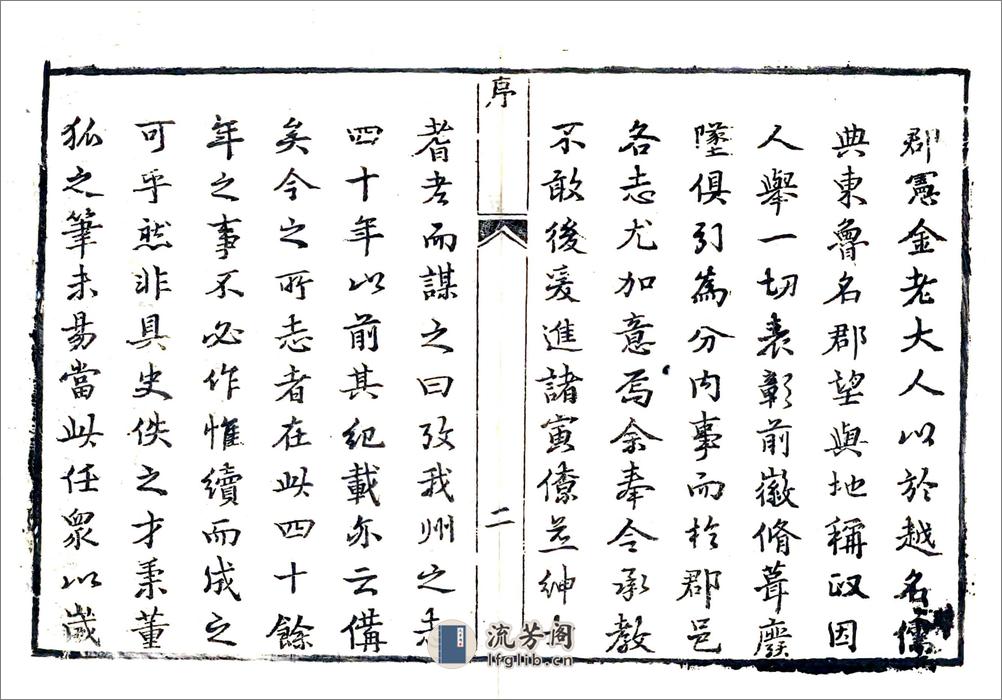 郡憲金老大人以於越名儒
典東魯名郡望與地稱政因
人舉一切表彰前徽脩葺廢
墜俱引為分内事而於郡邑
各志尤加意焉余奉令承教
不敢後爰進諸寅僚並紳
序
二
耆老而謀之曰攷我州之志
四十年以前其紀載亦云備
矣今之所志者在此四十餘
年之事不必作惟續而成之
可乎然非具史佚之才秉董
狐之筆未易當此任眾以嵗
流芳阁
lfglib.cn